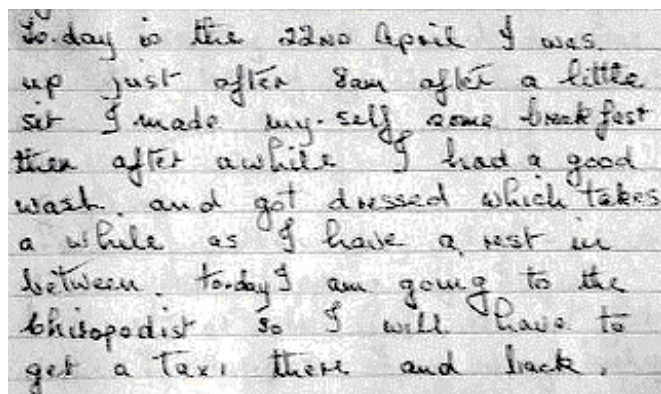 To.day is the 22ND April I was
up just after 8am after a little
sit I made my-self some breakfast
then after awhile I had a good
wash. and got dressed which takes
a while as I have a rest in
between. to-day I am going to the
Chiropodist so I will have to
get a Taxi there and back.